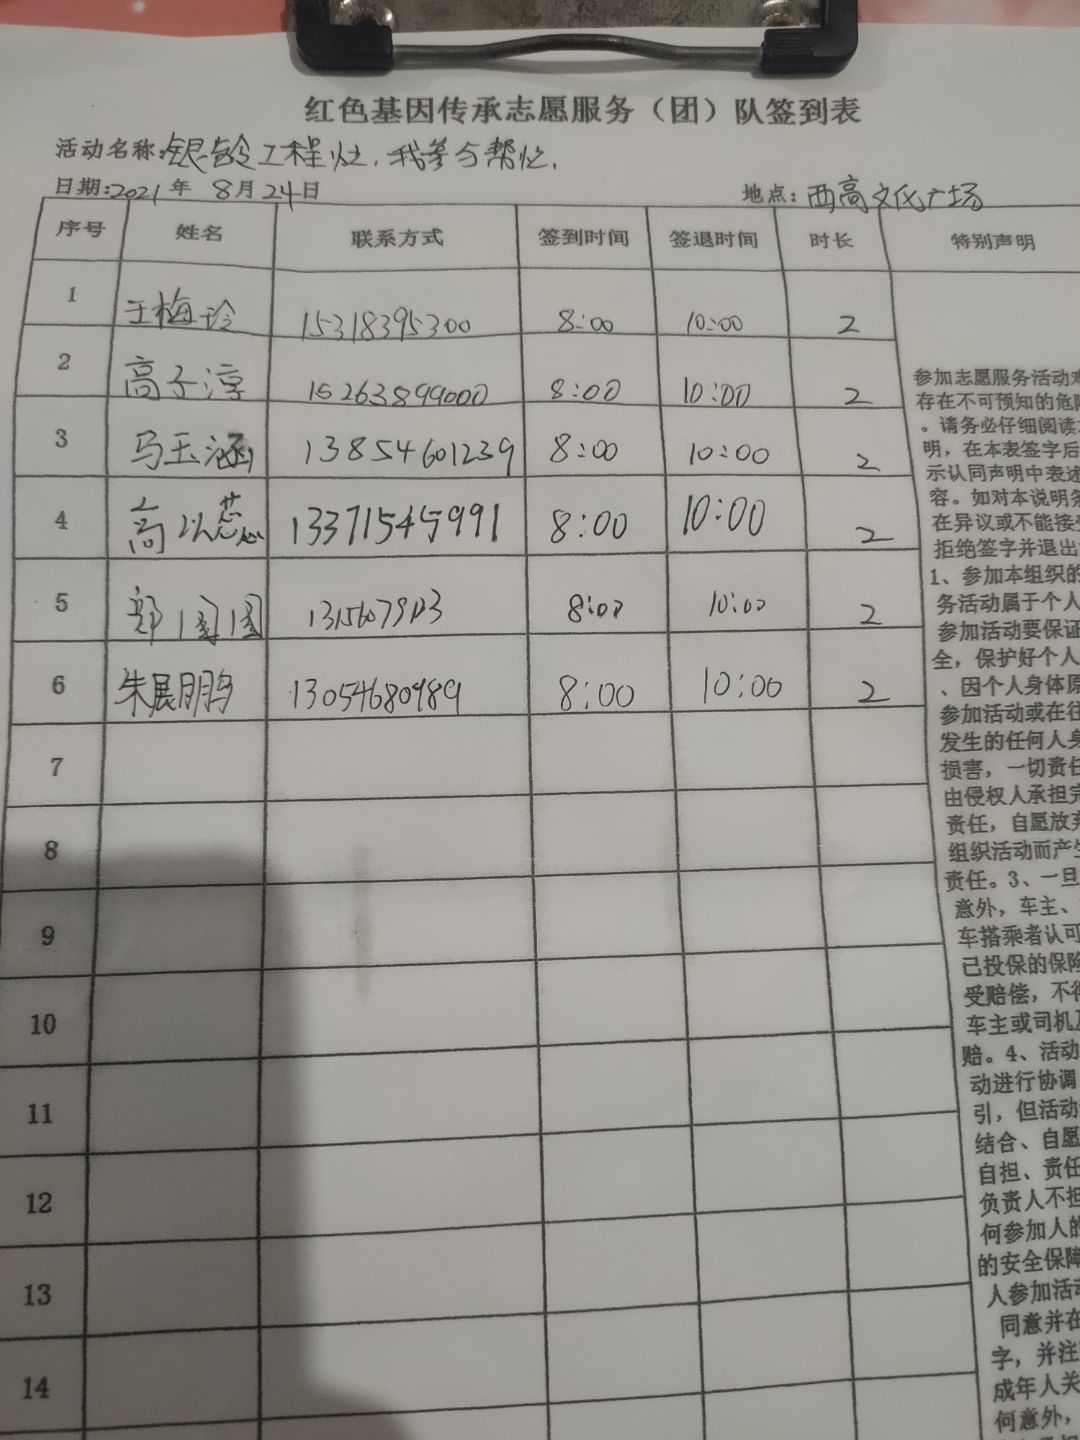 红色基因传承志愿服务（团）队签到表
活动名称:银龄工程灶.我参与帮忙.
日期:2021年 8月24日 地点：西高文化广场
序号 姓名 联系方式 签到时间 签退时间 时长 特别声明
1 王梅玲 15318395300 8:00 10:00 2
2 高子淳 15263899000 8:00 10:00 2
3 马玉涵 13854601239 8:00 10:00 2
4 高以蕊 13371545991 8:00 10:00 2
5 8:00 10:00 2
6 朱展鹏 13054680989 8:00 10:00 2
7
8
9
10
11
12
13
14
参加志愿服务活动难
存在不可预知的危险
。请务必仔细阅读
明，在本表签字后
示认同声明中表述
容。如对本说明条
在异议或不能接受
拒绝签字并退出
1、参加本组织的
务活动属于个人
参加活动要保证
全，保护好个人
、因个人身体原
参加活动或在往
发生的任何人身
损害，一切责任
由侵权人承担完
责任，自愿放弃
组织活动而产生
责任。3、一旦
意外，车主、
车搭乘者认可
已投保的保险
受赔偿，不得
车主或司机及
赔。4、活动
动进行协调
引，但活动
结合、自愿
自担、责任
负责人不担
何参加人的
的安全保障
人参加活动
同意并在
字，并注
成年人关
何意外，